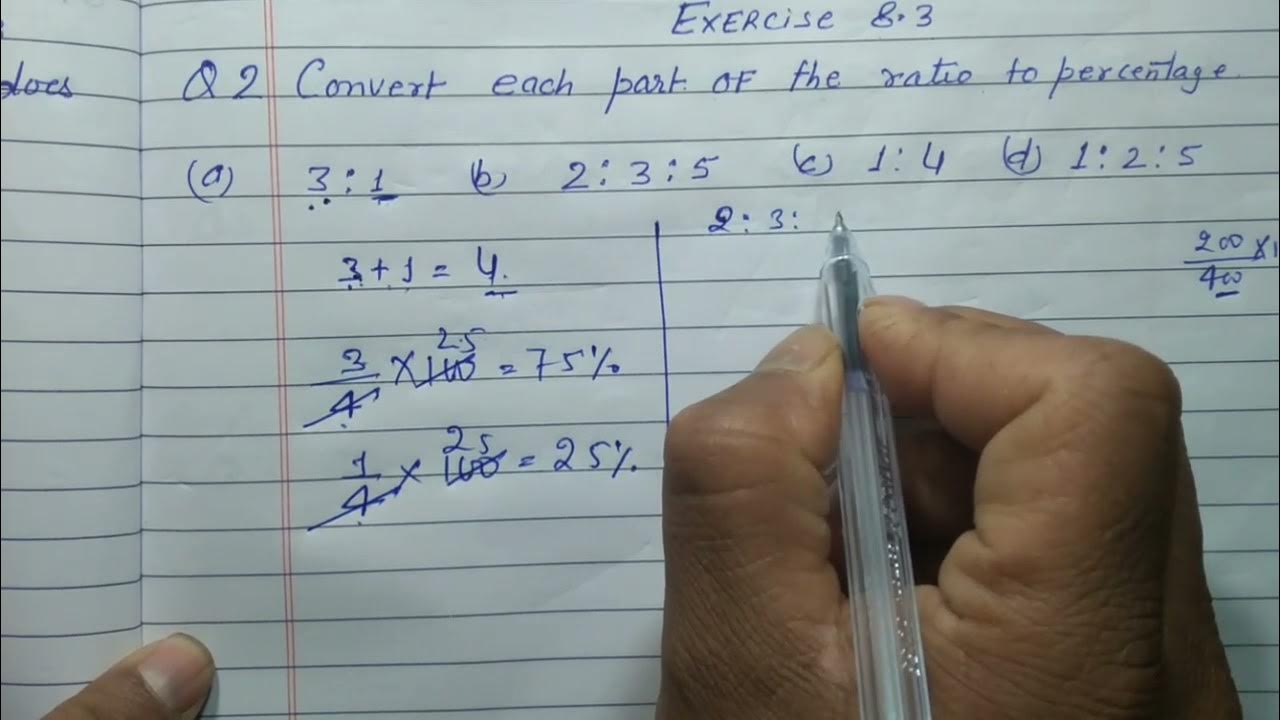 Exercise 8.3
does
Q2 Convert each part of the ratio to percentage.
(a) 3:1 (b) 2:3:5 (c) 1:4 (d) 1:2:5
2:3:
3+1 = 4.
200/400 ×1
3/4 × 100 25 = 75%
1/4 × 100 25 = 25%